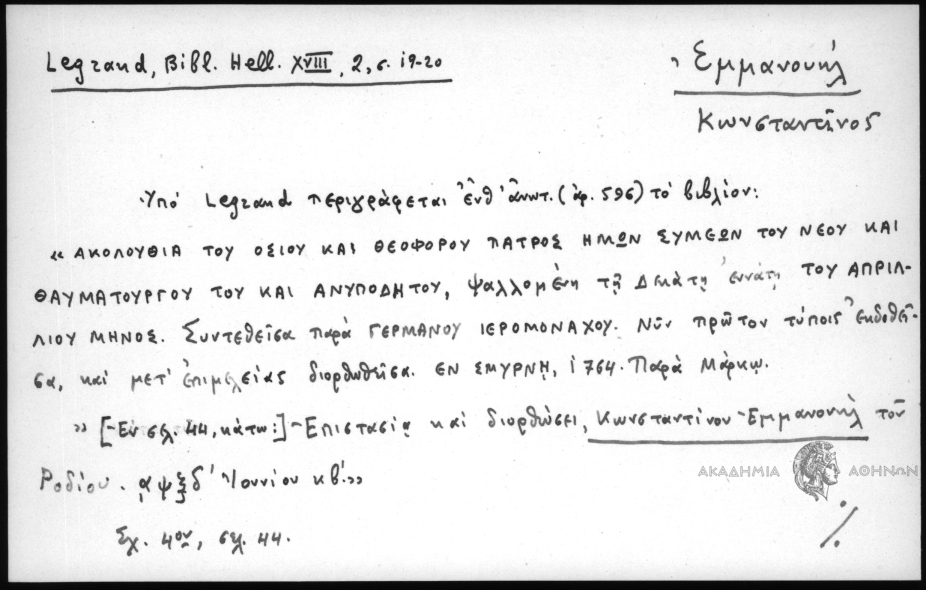 Legrand, Bibl. Hell. XVIII, 2, σ. 19-20
Ἐμμανουὴλ
Κωνσταντῖνος
Ὑπὸ Legrand περιγράφεται ἐνθ' ἀνωτ. (ἀρ. 596) τὸ βιβλίον:
« ΑΚΟΛΟΥΘΙΑ ΤΟΥ ΟΣΙΟΥ ΚΑΙ ΘΕΟΦΟΡΟΥ ΠΑΤΡΟΣ ΗΜΩΝ ΣΥΜΕΩΝ ΤΟΥ ΝΕΟΥ ΚΑΙ
ΘΑΥΜΑΤΟΥΡΓΟΥ ΤΟΥ ΚΑΙ ΑΝΥΠΟΔΗΤΟΥ, ψαλλομένη τῇ Δεκάτῃ ἐννάτῃ ΤΟΥ ΑΠΡΙΛ-
ΛΙΟΥ ΜΗΝΟΣ. Συντεθεῖσα παρὰ ΓΕΡΜΑΝΟΥ ΙΕΡΟΜΟΝΑΧΟΥ. Νῦν πρῶτον τύποις ἐκδοθεῖ-
σα, καὶ μετ' ἐπιμελείας διορθωθεῖσα. ΕΝ ΣΜΥΡΝῌ, 1764. Παρὰ Μάρκῳ.
» [-Ἐν σελ. 44, κάτω:] -Ἐπιστασίᾳ καὶ διορθώσει, Κωνσταντίνου Ἐμμανουὴλ τοῦ
Ροδίου. ͵αψξδ' Ἰουνίου κβ'.»
Σχ. 4ον, σελ. 44.
ΑΚΑΔΗΜΙΑ ΑΘΗΝΩΝ
./.